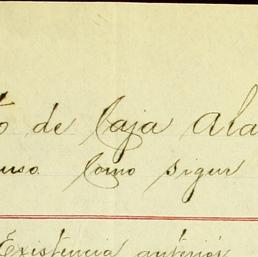 de Caja a la
Como sigue
Existencia anterior